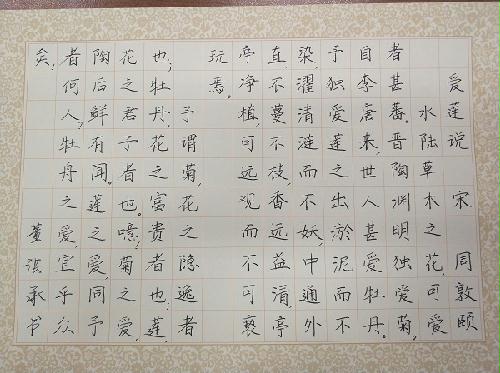 爱莲说 宋 周敦颐
水陆草木之花,可爱
者甚蕃。晋陶渊明独爱菊,
自李唐来,世人甚爱牡丹。
予独爱莲之出淤泥而不
染,濯清涟而不妖,中通外
直,不蔓不枝,香远益清,亭
亭净植,可远观而不可亵
玩焉。
予谓菊,花之隐逸者
也;牡丹,花之富贵者也;莲,
花之君子者也。噫!菊之爱,
陶后鲜有闻。莲之爱,同予
者何人,牡丹之爱,宜乎众
矣。 董